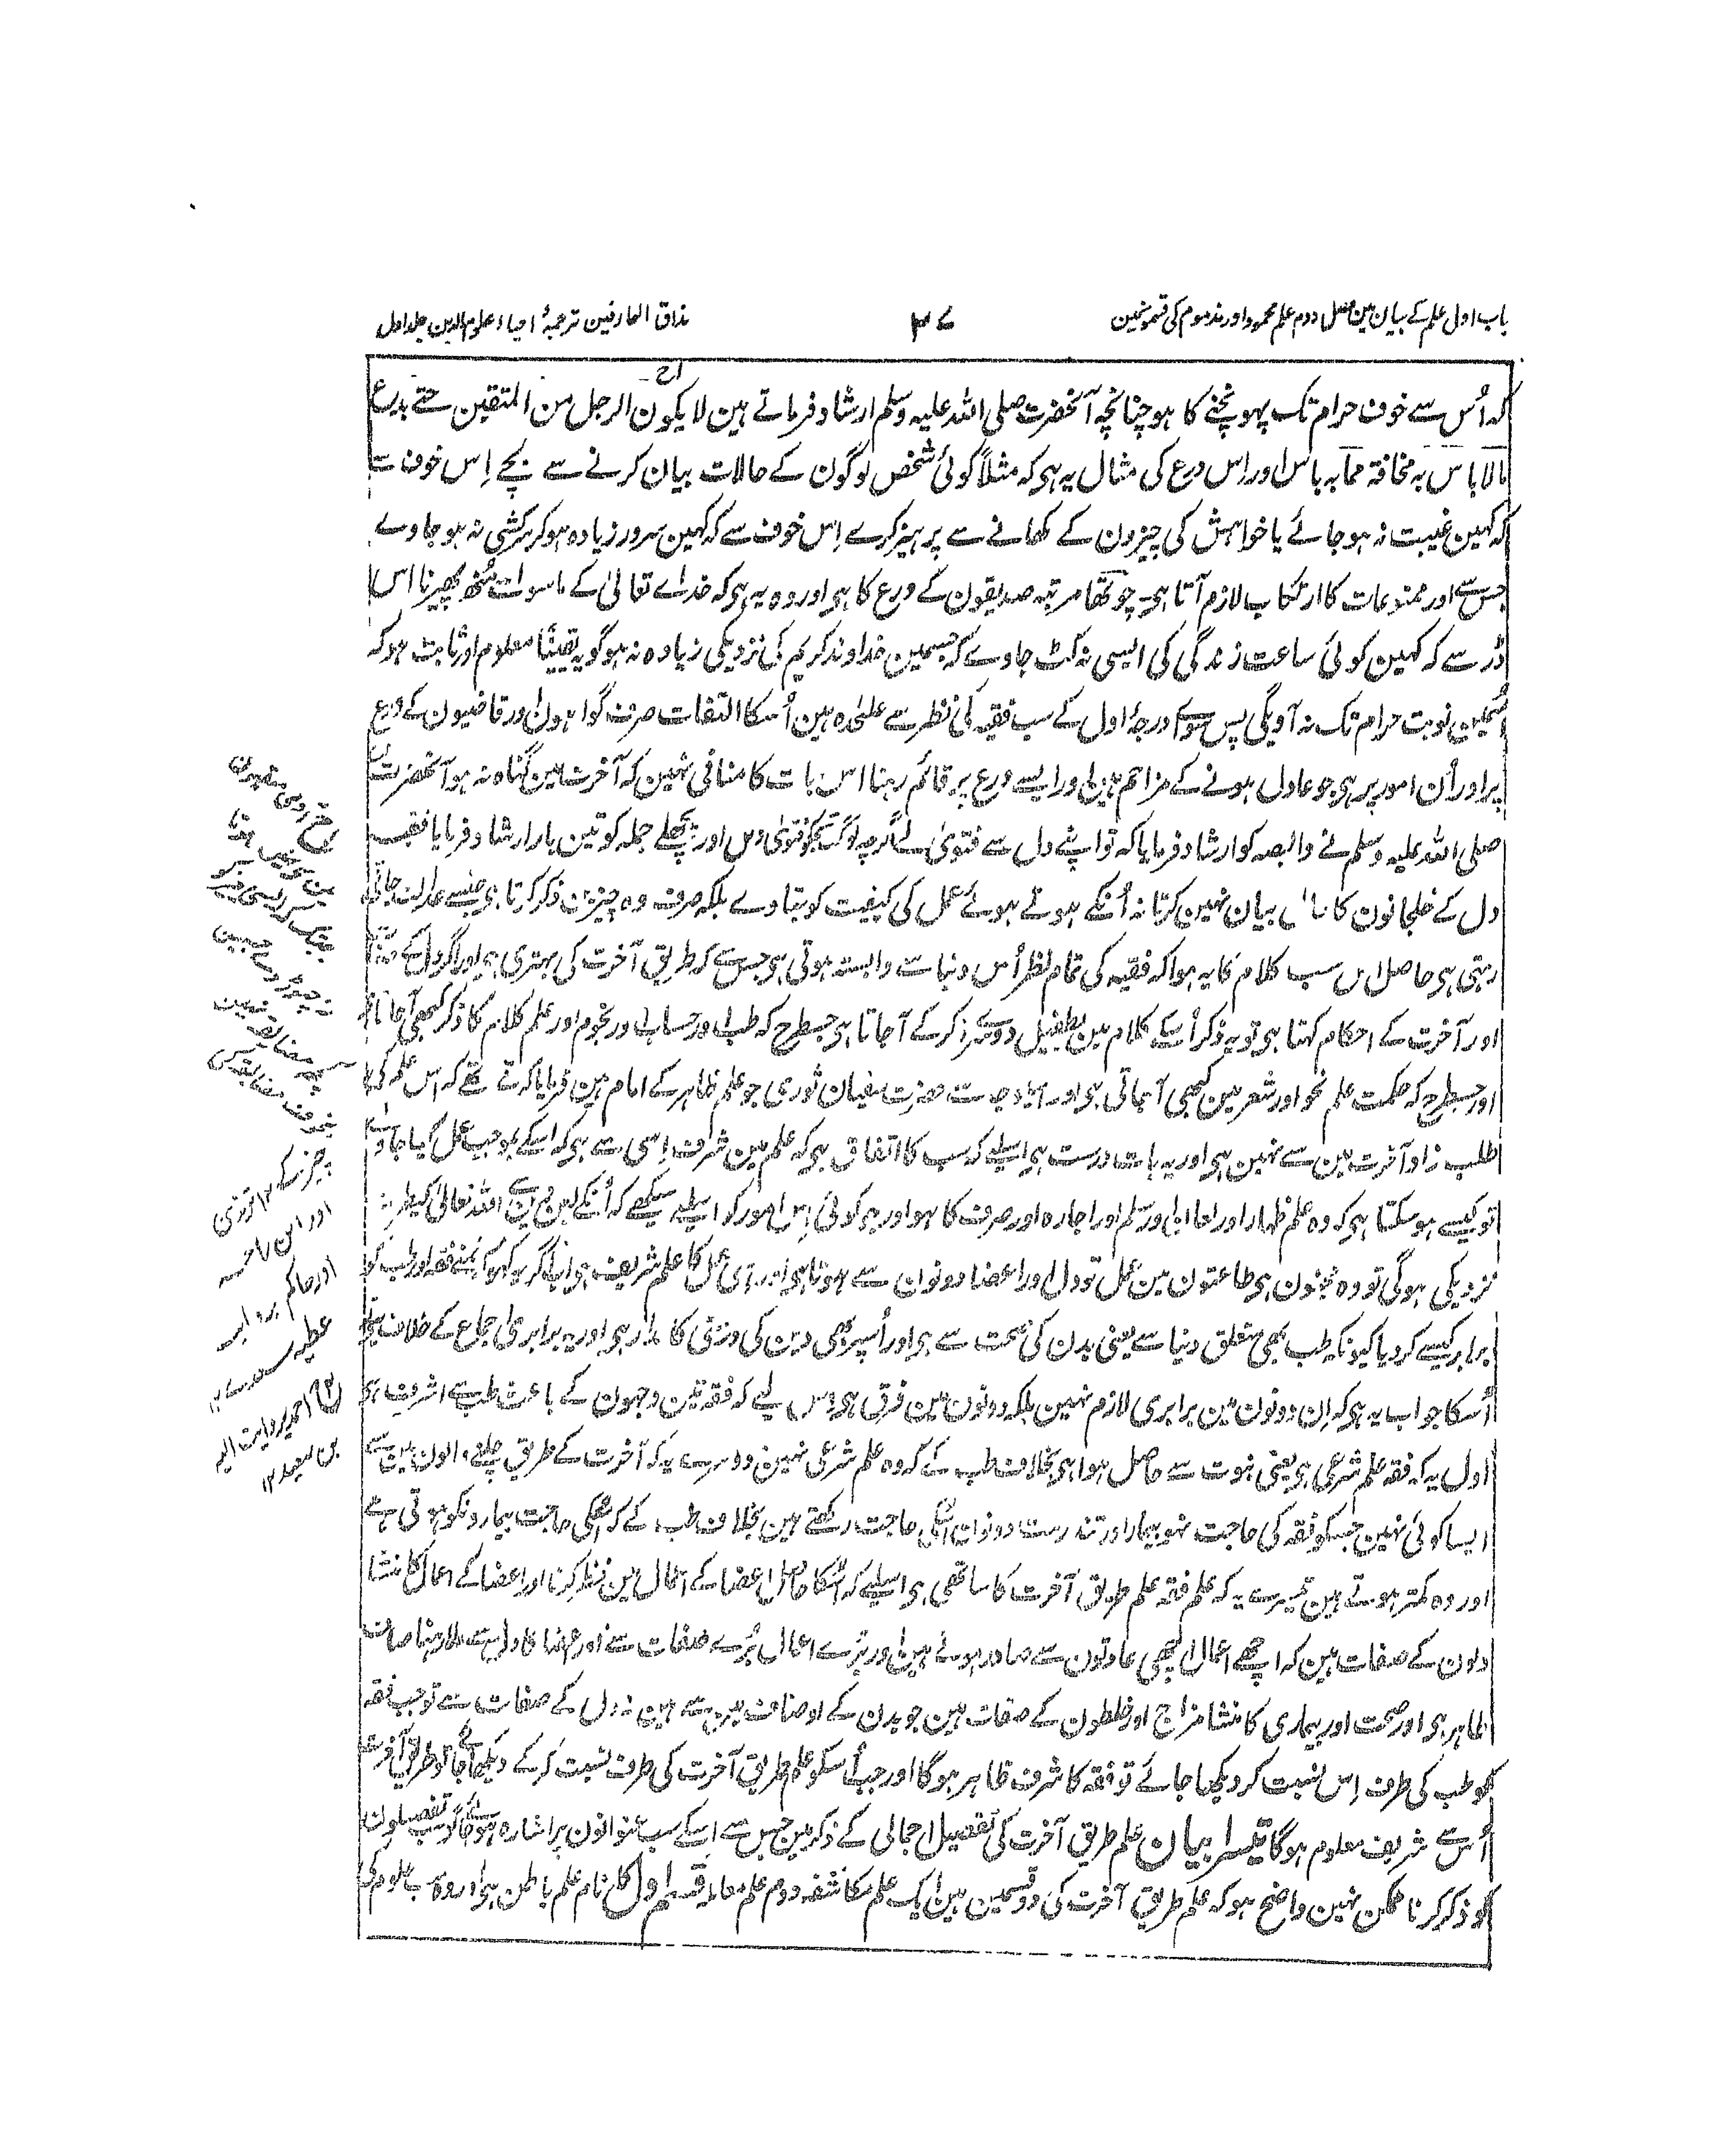 باب اول علم کے بیان مین فصل دوم علم محمود اور مذموم کی قسمونمین
۳۷
مذاق العارفین ترجمۂ احیاء علوم الدین جلد اول
کہ اُس سے خوف حرام تک پہونچنے کا ہو چنانچہ آنحضرت صلی اللہ علیہ وسلم ارشاد فرماتے ہین لا یکون الرجل من المتقین حتے یدع
مالا باس بہ مخافۃ مما بہ باس اور اس ورع کی مثال یہ ہی کہ مثلاً کوئی شخص لوگون کے حالات بیان کرنے سے بچے اِس خوف سے
کہ کہین غیبت نہ ہو جائے یا خواہش کی چیزون کے کھانے سے پرہیز کرے اِس خوف سے کہ کہین سرور زیادہ ہو کر سرکشی نہ ہو جاوے
جس سے اور ممنوعات کا ارتکاب لازم آتا ہی چوتھا مرتبہ صدیقون کے ورع کا ہی اور وہ یہ ہی کہ خداے تعالیٰ کے ماسوا سے مُنھ پھیرنا اس
ڈر سے کہ کہین کوئی ساعت زندگی کی ایسی نہ کٹ جاوے کہ جسمین خداوند کریم کی نزدیکی زیادہ نہ ہو گو یہ یقیناً معلوم اور ثابت ہو کہ
اُسمین نوبت حرام تک نہ آویگی پس سواے درجۂ اول کے سب فقیہ کی نظر سے علٰحدہ ہین اُسکا التفات صرف گواہون اور قاضیون کے ورع
پر اور اُن امور پر ہی جو عادل ہونے کے مزاحم ہین اور ایسے ورع پر قائم رہنا اس بات کا منافی نہین کہ آخرت مین گناہ نہ ہو آنحضرت
صلی اللہ علیہ وسلم نے وابصہ کو ارشاد فرمایا کہ تو اپنے دل سے فتویٰ لے اگرچہ لوگ تجھکو فتویٰ دین اور پچھلے جملہ کو تین بار ارشاد فرمایا فقیہ
دل کے خلجانون کا بیان نہین کرتا نہ اُنکے ہوتے ہوئے عمل کی کیفیت کو بتاوے بلکہ صرف وہ چیزین ذکر کرتا ہی جنسے عدالت جاتی
رہتی ہی حاصل اس سب کلام کا یہ ہوا کہ فقیہ کی تمام نظر اُس دنیا سے وابستہ ہوتی ہی جس سے کہ طریق آخرت کی بہتری ہی اور اگر دل کے
اور آخرت کے احکام کہتا ہی تو یہ ذکر اُسکے کلام مین بطفیل دوسرے ذکر کے آجاتا ہی جسطرح کہ طب اور حساب اور نجوم اور علم کلام کا ذکر کبھی آجاتا
اور جسطرح کہ حکمت علم نحو اور شعر مین کبھی آجاتی ہی اور حضرت سفیان ثوری جو علم ظاہر کے امام ہین فرمایا کرتے تھے کہ اس علم کی
طلب زاد آخرت مین سے نہین ہی اور یہ بات درست ہی اسلیے کہ سب کا اتفاق ہی کہ علم مین شرف اِسی سے ہی کہ اسکے بموجب عمل کیا جاوے
تو کیسے ہو سکتا ہی کہ وہ علم ظہار اور لعان اور سلم اور اجارہ اور صرف کا ہو اور جو کوئی اِن امور کو اسلیے سیکھے کہ اُنکے لین دین سے اللہ تعالیٰ کیطرف
نزدیکی ہوگی تو وہ مجنون ہی طاعتون مین عمل تو دل اور اعضا دونون سے ہوتا ہی اور عمل کا علم شریف ہی اب اگر یہ کہو کہ تمنے فقہ اور طب کو
برابر کیسے کر دیا کیونکہ طب بھی متعلق دنیا سے یعنی بدن کی صحت سے ہی اور اُسپر بھی دین کی درستی کا مدار ہی اور یہ برابری اجماع کے خلاف ہی
اُسکا جواب یہ ہی کہ اِن دونون مین برابری لازم نہین بلکہ دونون مین فرق ہی اِس لیے کہ فقہ تین وجہون کے باعث طب سے اشرف ہی
اول یہ کہ فقہ علم شرعی ہی یعنی نبوت سے حاصل ہوا ہی بخلاف طب کے کہ وہ علم شرعی نہین دوسرے یہ کہ آخرت کے طریق چلنے والون مین سے
ایسا کوئی نہین جسکو فقہ کی حاجت نہو بیمار اور تندرست دونون اُسکی حاجت رکھتے ہین بخلاف طب کے کہ اُسکی حاجت بیمارونکو ہوتی ہے
اور وہ کمتر ہوتے ہین تیسرے یہ کہ علم فقہ علم طریق آخرت کا ساتھی ہی اسلیے کہ اُسکا حاصل اعضا کے اعمال مین نظر کرنا اور اعضا کے اعمال کا منشا
دلون کے صفات ہین کہ اچھے اعمال اچھی عادتون سے صادر ہوتے ہین اور بُرے اعمال بُرے صفات سے اور اعضا کا دل سے علاقہ رکھنا صاف
ظاہر ہی اور صحت اور بیماری کا منشا مزاج اور خلطون کے صفات ہین جو بدن کے اوصاف مین سے ہین نہ دل کے صفات سے تو جب فقہ
کو طب کی طرف اِس نسبت کر دیکھا جائے تو فقہ کا شرف ظاہر ہوگا اور جب اُسکو علم طریق آخرت کی طرف نسبت کر کے دیکھا جائے تو طریق آخرت
اُس سے شریف معلوم ہوگا تیسرا بیان علم طریق آخرت کی تفصیل اجمالی کے ذکر مین جس سے اِسکے سب عنوانون پر اشارہ ہو جائے گو سب تفصیلون
کو ذکر کرنا ممکن نہین واضح ہو کہ علم طریق آخرت کی دو قسمین ہین ایک علم مکاشفہ دوم علم معاملہ قسم اول کا نام علم باطن ہی اور وہ سب علوم کی
چیز کے ۱۲ ترمذی
اور ابن ماجہ
اور حاکم بروایت
عطیہ سعدی ۱۲
احمد بروایت
بن سعید ۱۲